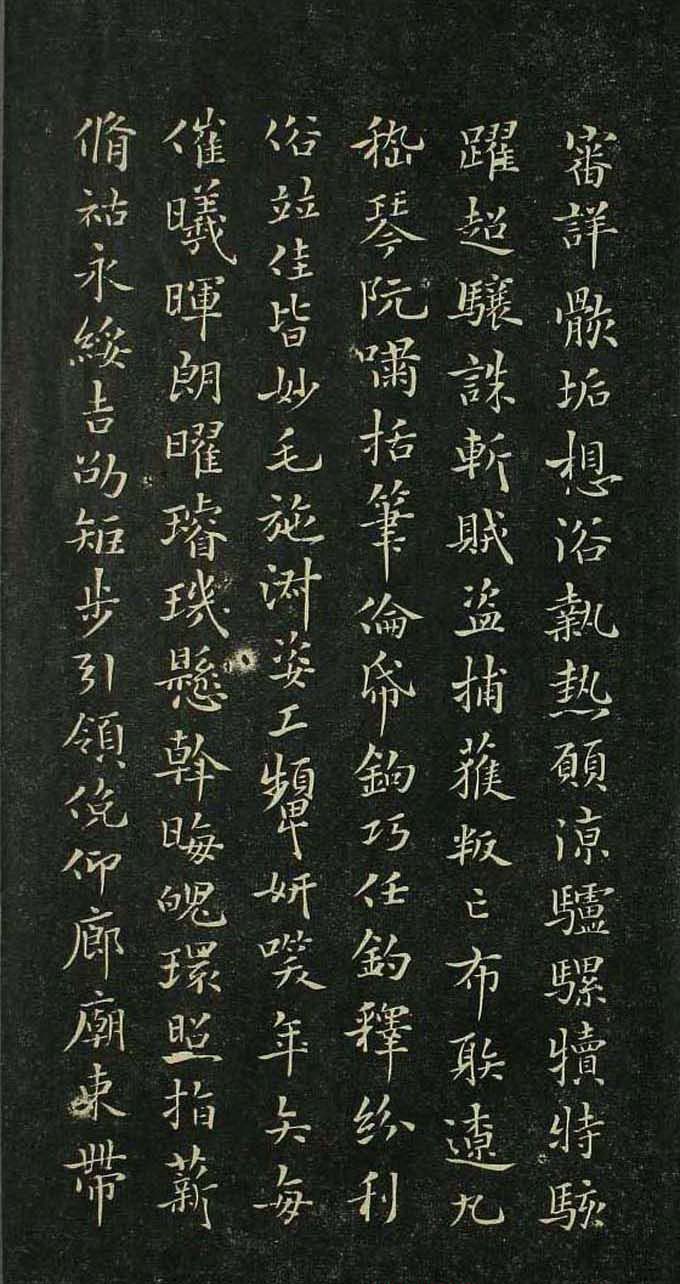 審詳骸垢想浴執熱願涼驢騾犢特駭
躍超驤誅斬賊盜捕獲叛亡布射遼丸
嵇琴阮嘯恬筆倫紙鈞巧任釣釋紛利
俗竝佳皆妙毛施淑姿工顰妍笑年矢每
催曦暉朗曜璿璣懸斡晦魄環照指薪
脩祜永綏吉劭矩步引領俛仰廊廟束帶